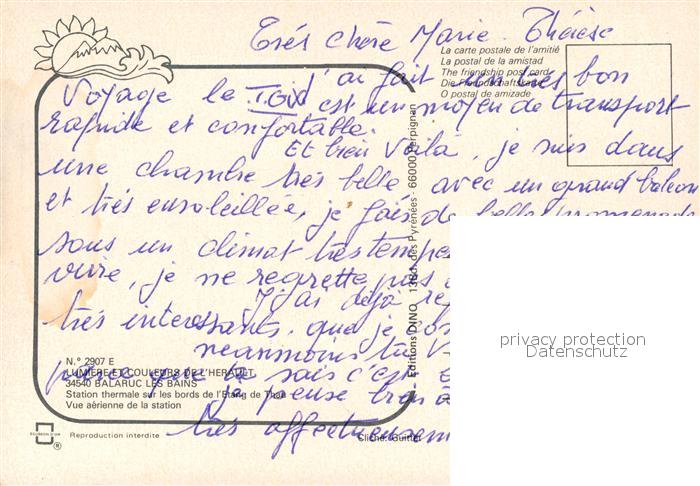 Très chère Marie. Thérèse
La carte postale de l'amitié
La postal de la amistad
The friendship post card
Die Freundschaftskarte
O postal de amizade
J'ai fait un très bon
Voyage le TGV est un moyen de transport
rapide et confortable.
Et bien voilà, je suis dans
une chambre très belle avec un grand balcon
et très ensoleillée, je fais de belles promenade
sous un climat très tempe
vivre, je ne regrette pas
J'ai déjà re
très interessants. que je
néanmoins
parce que je sais c'est
je pense
très affectueusem
N.° 2907 E
LUMIERE ET COULEURS DE L'HERAULT
34540 BALARUC LES BAINS
Station thermale sur les bords de l'Etang de Thau
Vue aérienne de la station
Reproduction interdite
Cliché: Guitter
Editions DINO 138d. des Pyrénées - 66000 Perpignan
privacy protection
Datenschutz